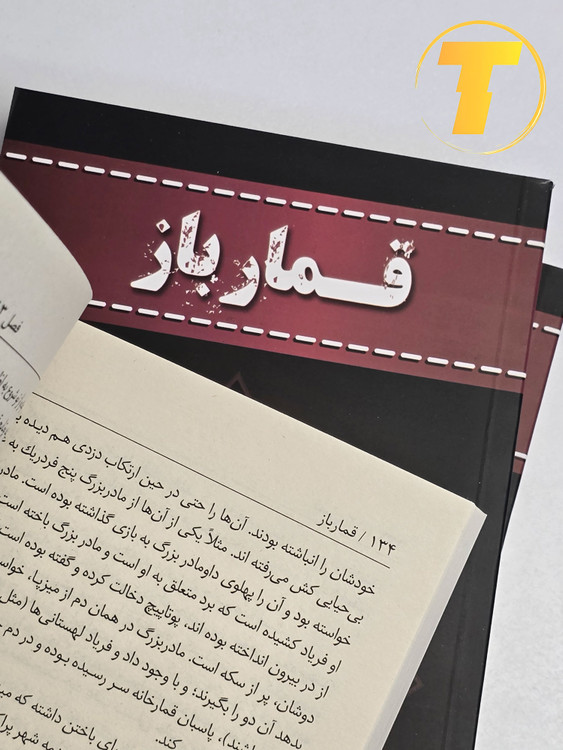 T
قمارباز
فصل
۱۳۴ / قمارباز
خودشان را انباشته بودند. آن‌ها را حتی در حین ارتکاب دزدی هم دیده
بی حیایی کش می‌رفته اند. مثلاً یکی از آن‌ها از مادربزرگ پنج فردریك به
خواسته بود و آن را پهلوی داومادر بزرگ به بازی گذاشته بوده است. مادر
او فریاد کشیده است که برد متعلق به او است و مادر بزرگ باخته است
از در بیرون انداخته بوده اند، پوتاپیچ دخالت کرده و گفته بوده است
دوشان، پر از سکه است. مادربزرگ در همان دم از میزپا، خواس
بدهد آن دو را بگیرند؛ و با وجود داد و فریاد لهستانی ها (مثل
پاسبان قمارخانه سر رسیده بوده و در دم
ای باختن داشته که
کند.
شهر